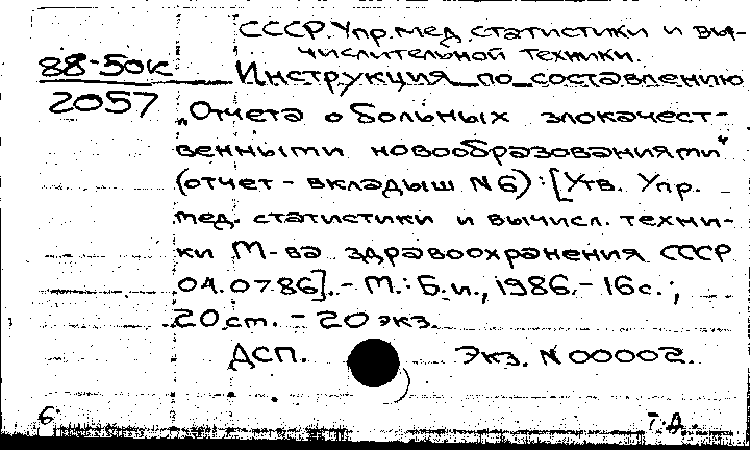 СССР. Упр. мед. статистики и вы-
числительной техники.
88-50к Инструкция по составлению
2057 „Отчета о больных злокачест-
венными новообразованиями"
(отчет - вкладыш №6) : [Утв. Упр.
мед. статистики и вычисл. техни-
ки М-ва здравоохранения СССР
04.07.86]. - М.: Б.и., 1986. - 16с.;
20 см. - 20 экз.
ДСП. Экз. № 00002.
б. Т.Д.